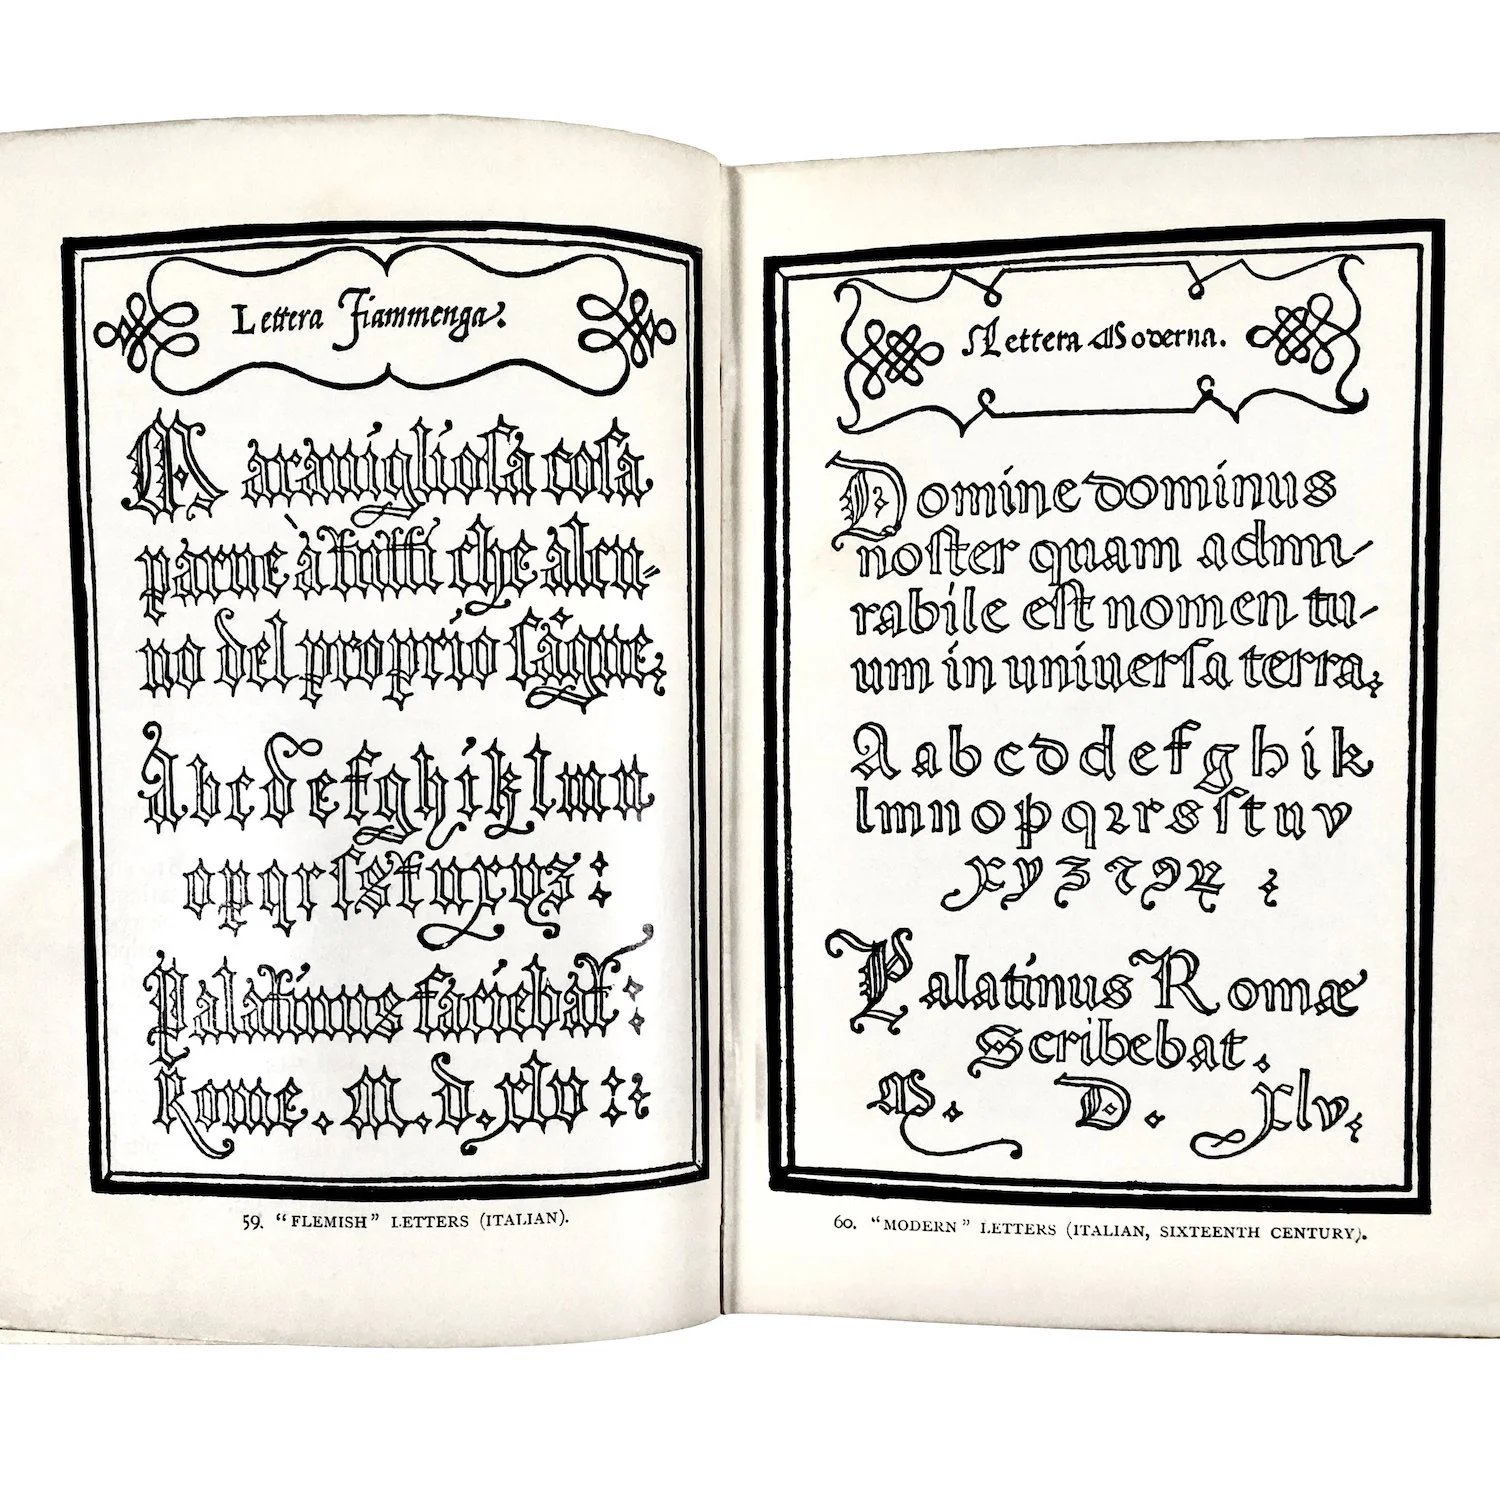 Lettera Fiammenga.
Marauiglioſa coſa
parue à tutti che alcu-
no del proprio ſãgue,
Abcdefghiklmn
opqrſstuxyz:
Palatinus faciebat:
Rome. M. d. xlv
59. "FLEMISH" LETTERS (ITALIAN).
Lettera Moderna.
Domine dominus
noſter quam admi-
rabile eſt nomen tu-
um in uniuerſa terra,
Aabcddefghik
lmnopqꝛrsſtuv
xyz
Palatinus Romæ
Scribebat.
M. D. Xlv,
60. "MODERN" LETTERS (ITALIAN, SIXTEENTH CENTURY).